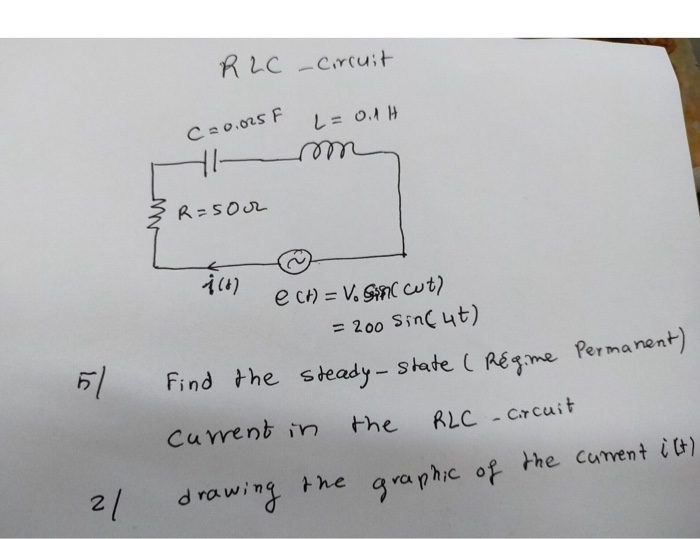 RLC - Circuit
C = 0.025 F L = 0.1 H
R = 50 Ω
i(t)
e(t) = V₀ Sin(ωt)
= 200 Sin(4t)
5/ Find the steady-state (Régime Permanent)
Current in the RLC - Circuit
2/ drawing the graphic of the current i(t)